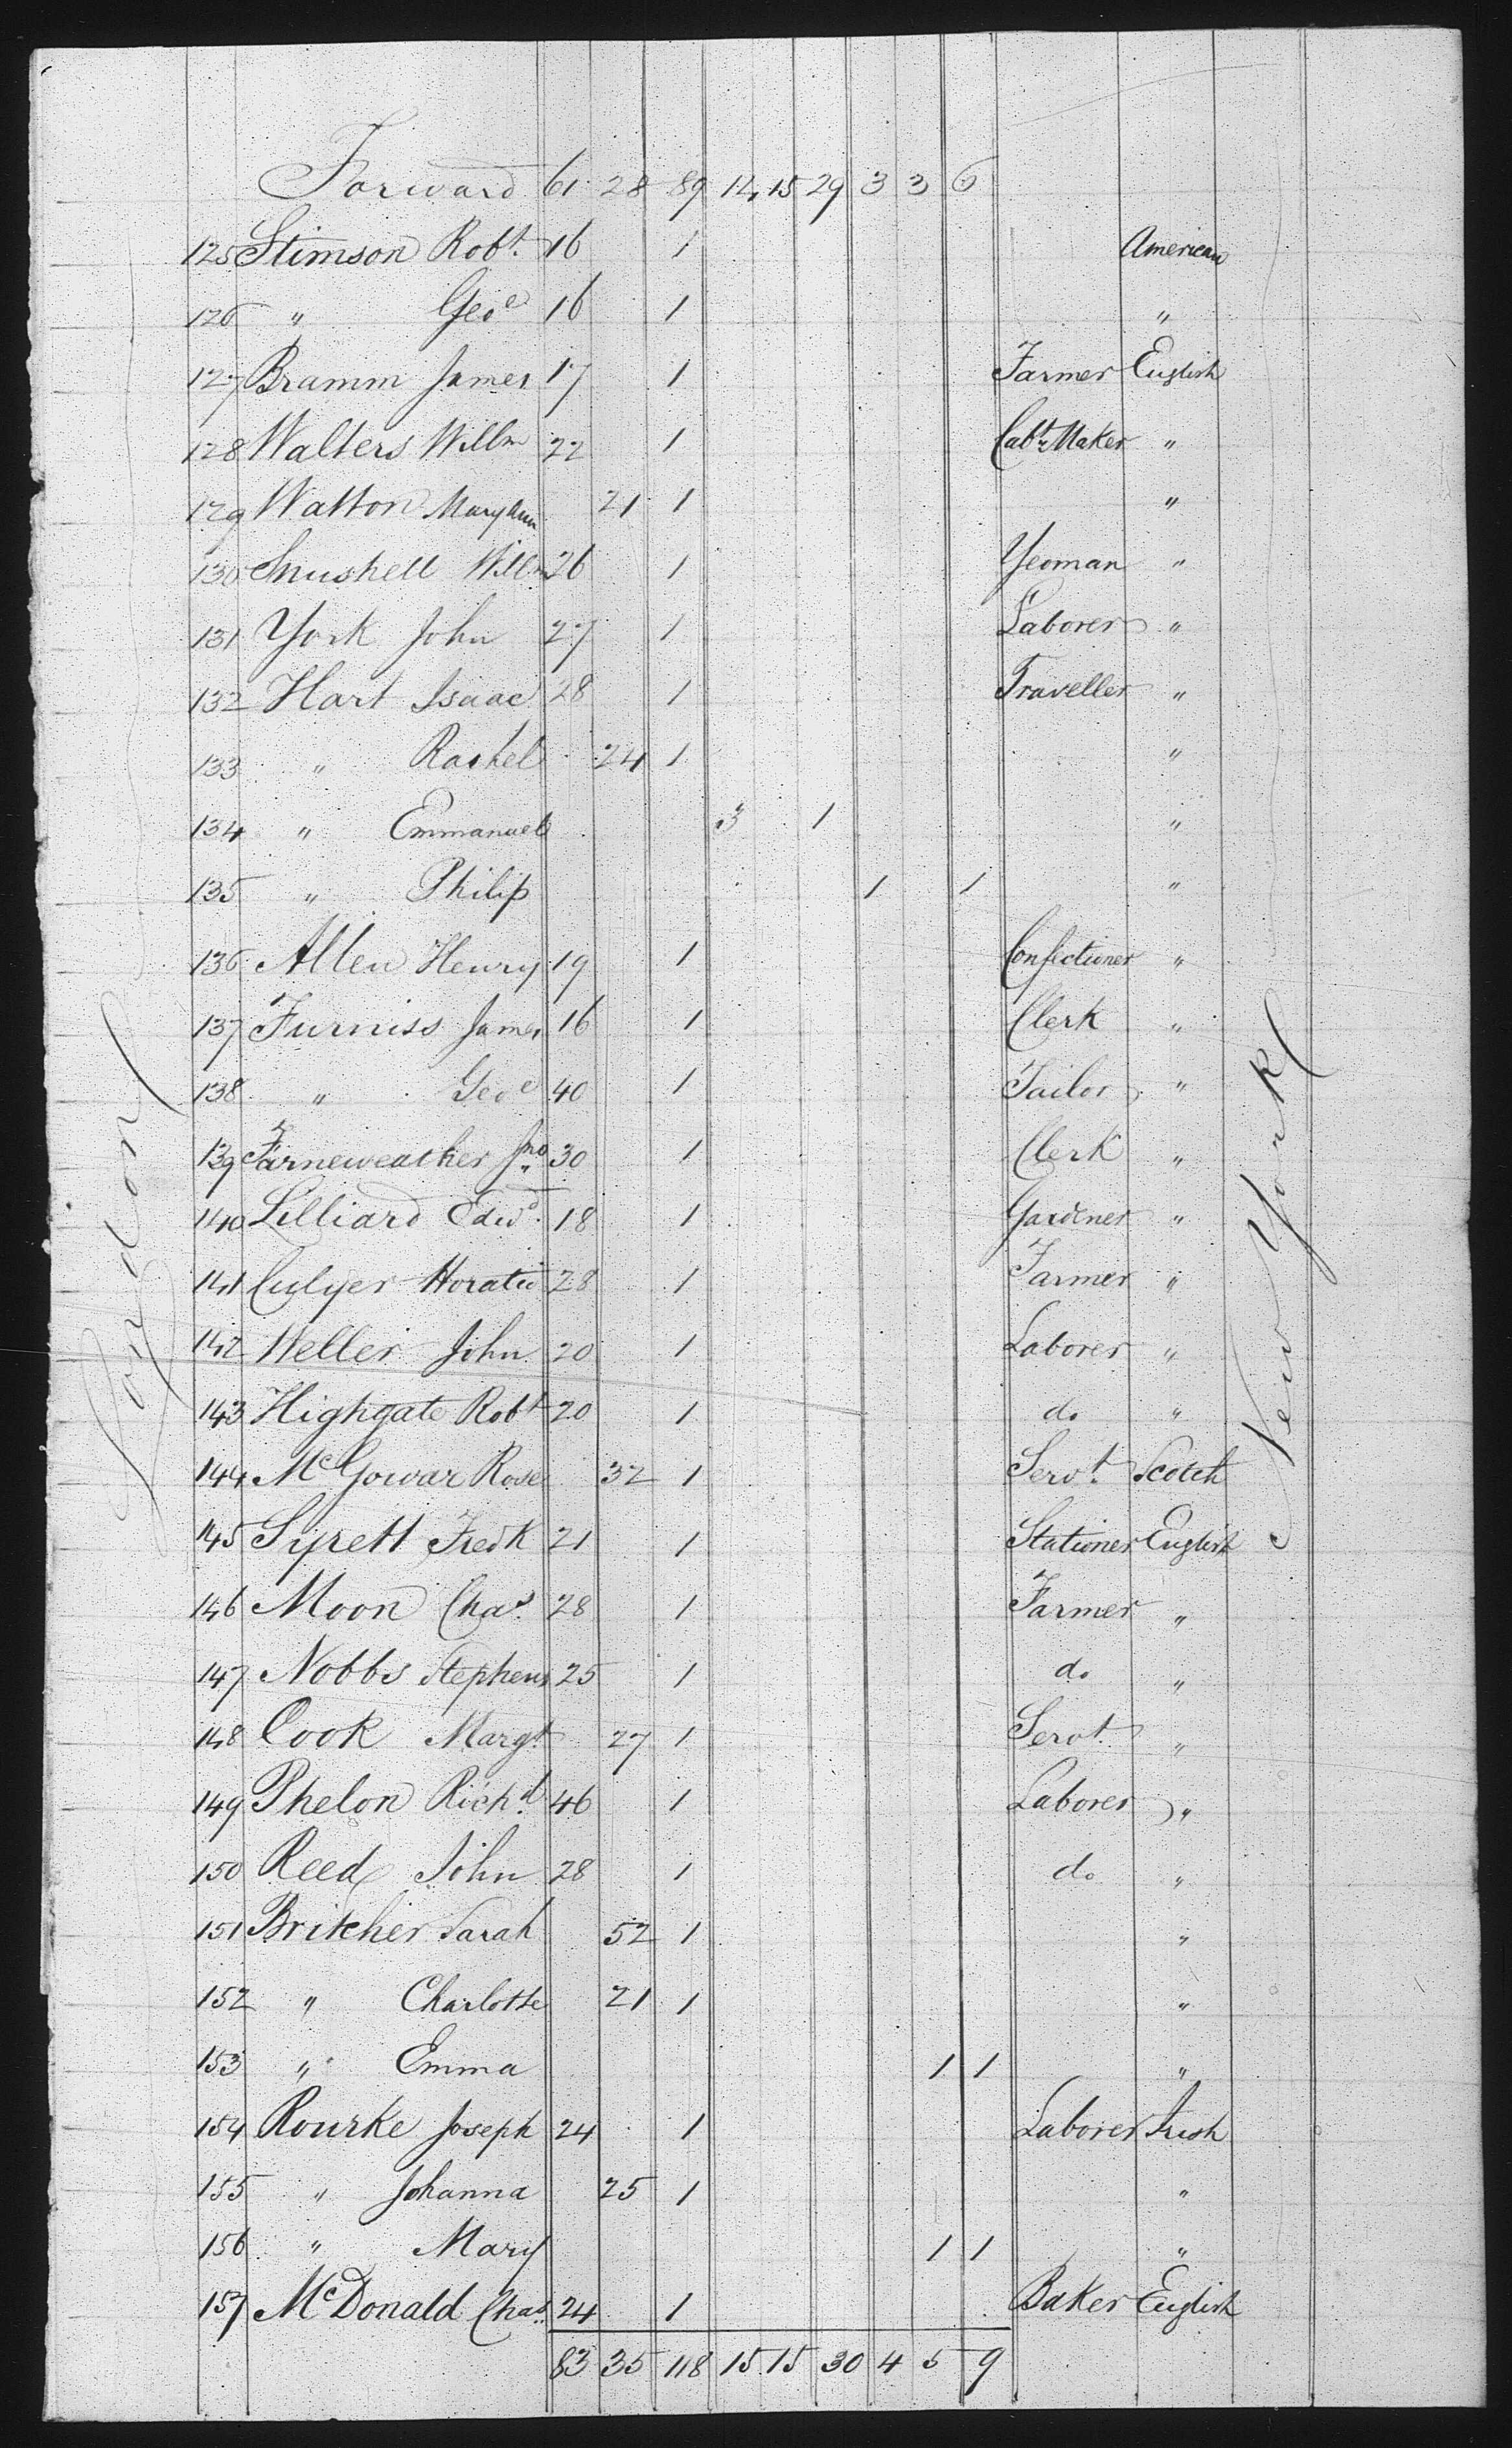 Forward 61 28 89 14 15 29 3 3 6
125 Stimson Robt. 16 1 American
126 " Geoe 16 1 "
127 Bramm James 17 1 Farmer English
128 Walters Willm 22 1 Cabt. Maker "
129 Watton Mary Ann 21 1 "
130 Snushell Willm 26 1 Yeoman "
131 York John 27 1 Laborer "
132 Hart Isaac 28 1 Traveller "
133 " Rachel 24 1 "
134 " Emmanuel 3 1 "
135 " Philip 1 1 "
136 Allen Henry 19 1 Confectioner "
137 Furniss James 16 1 Clerk "
138 " Geoe 40 1 Tailor "
139 Farneweather Jno 30 1 Clerk "
140 Lilliard Edwd. 18 1 Gardener "
141 Culyer Horatio 28 1 Farmer "
142 Weller John 20 1 Laborer "
143 Highgate Robt 20 1 do "
144 McGowar Rose 32 1 Servt. Scotch
145 Syrett Fredk 21 1 Stationer English
146 Moon Chas. 28 1 Farmer "
147 Nobbs Stephens 25 1 do "
148 Cook Margt. 27 1 Servt. "
149 Phelon Richd. 46 1 Laborer "
150 Reed John 28 1 do "
151 Britcher Sarah 52 1 "
152 " Charlotte 21 1 "
153 " Emma 1 1 "
154 Rourke Joseph 24 1 Laborer Irish
155 " Johanna 25 1 "
156 " Mary 1 1 "
157 McDonald Chas. 24 1 Baker English
83 35 118 15 15 30 4 5 9
London
New York